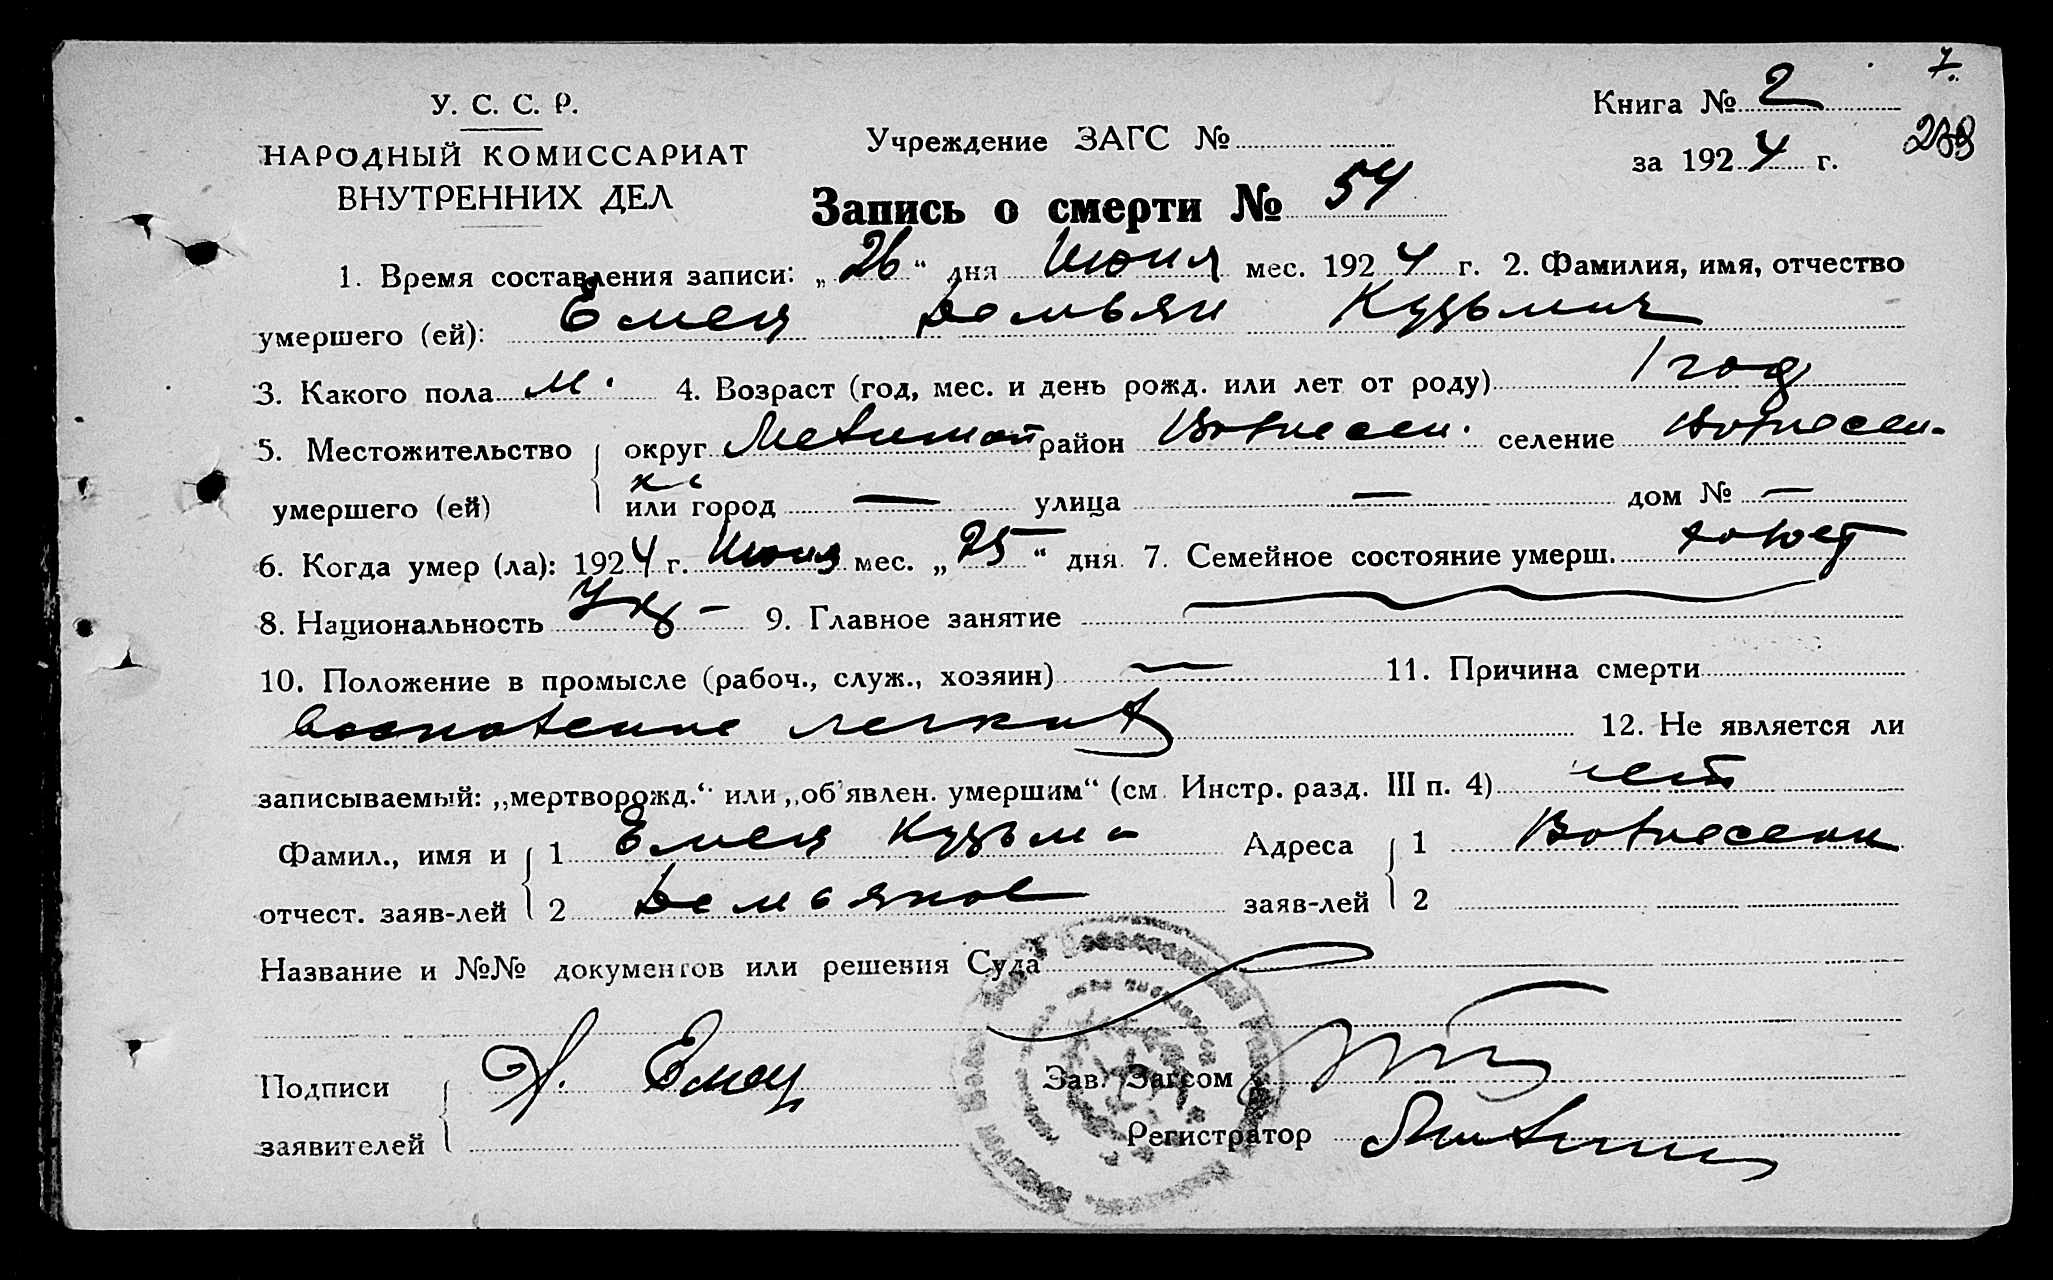 7.
У. С. С. Р.
Книга № 2
НАРОДНЫЙ КОМИССАРИАТ
ВНУТРЕННИХ ДЕЛ
Учреждение ЗАГС №
за 1924 г.
Запись о смерти № 54
1. Время составления записи: „26“ дня Июня мес. 1924 г. 2. Фамилия, имя, отчество
умершего (ей): Емец Демьян Кузьмич
3. Какого пола м. 4. Возраст (год, мес. и день рожд. или лет от роду) 1 год
5. Местожительство округ район Вознесен. селение Вознесен-
ка
умершего (ей) или город — улица — дом № —
6. Когда умер (ла): 1924 г. Июня мес. „25“ дня 7. Семейное состояние умерш. холост
8. Национальность Укр – 9. Главное занятие
10. Положение в промысле (рабоч., служ., хозяин) — 11. Причина смерти
воспаление легких 12. Не является ли
записываемый: „мертворожд.“ или „об'явлен. умершим“ (см. Инстр. разд. III п. 4) нет
Фамил., имя и 1 Емец Кузьма Адреса 1 Вознесенк
отчест. заяв-лей 2 Демьянов заяв-лей 2
Название и №№ документов или решения Суда
Подписи Емец Зав. Загсом
заявителей Регистратор